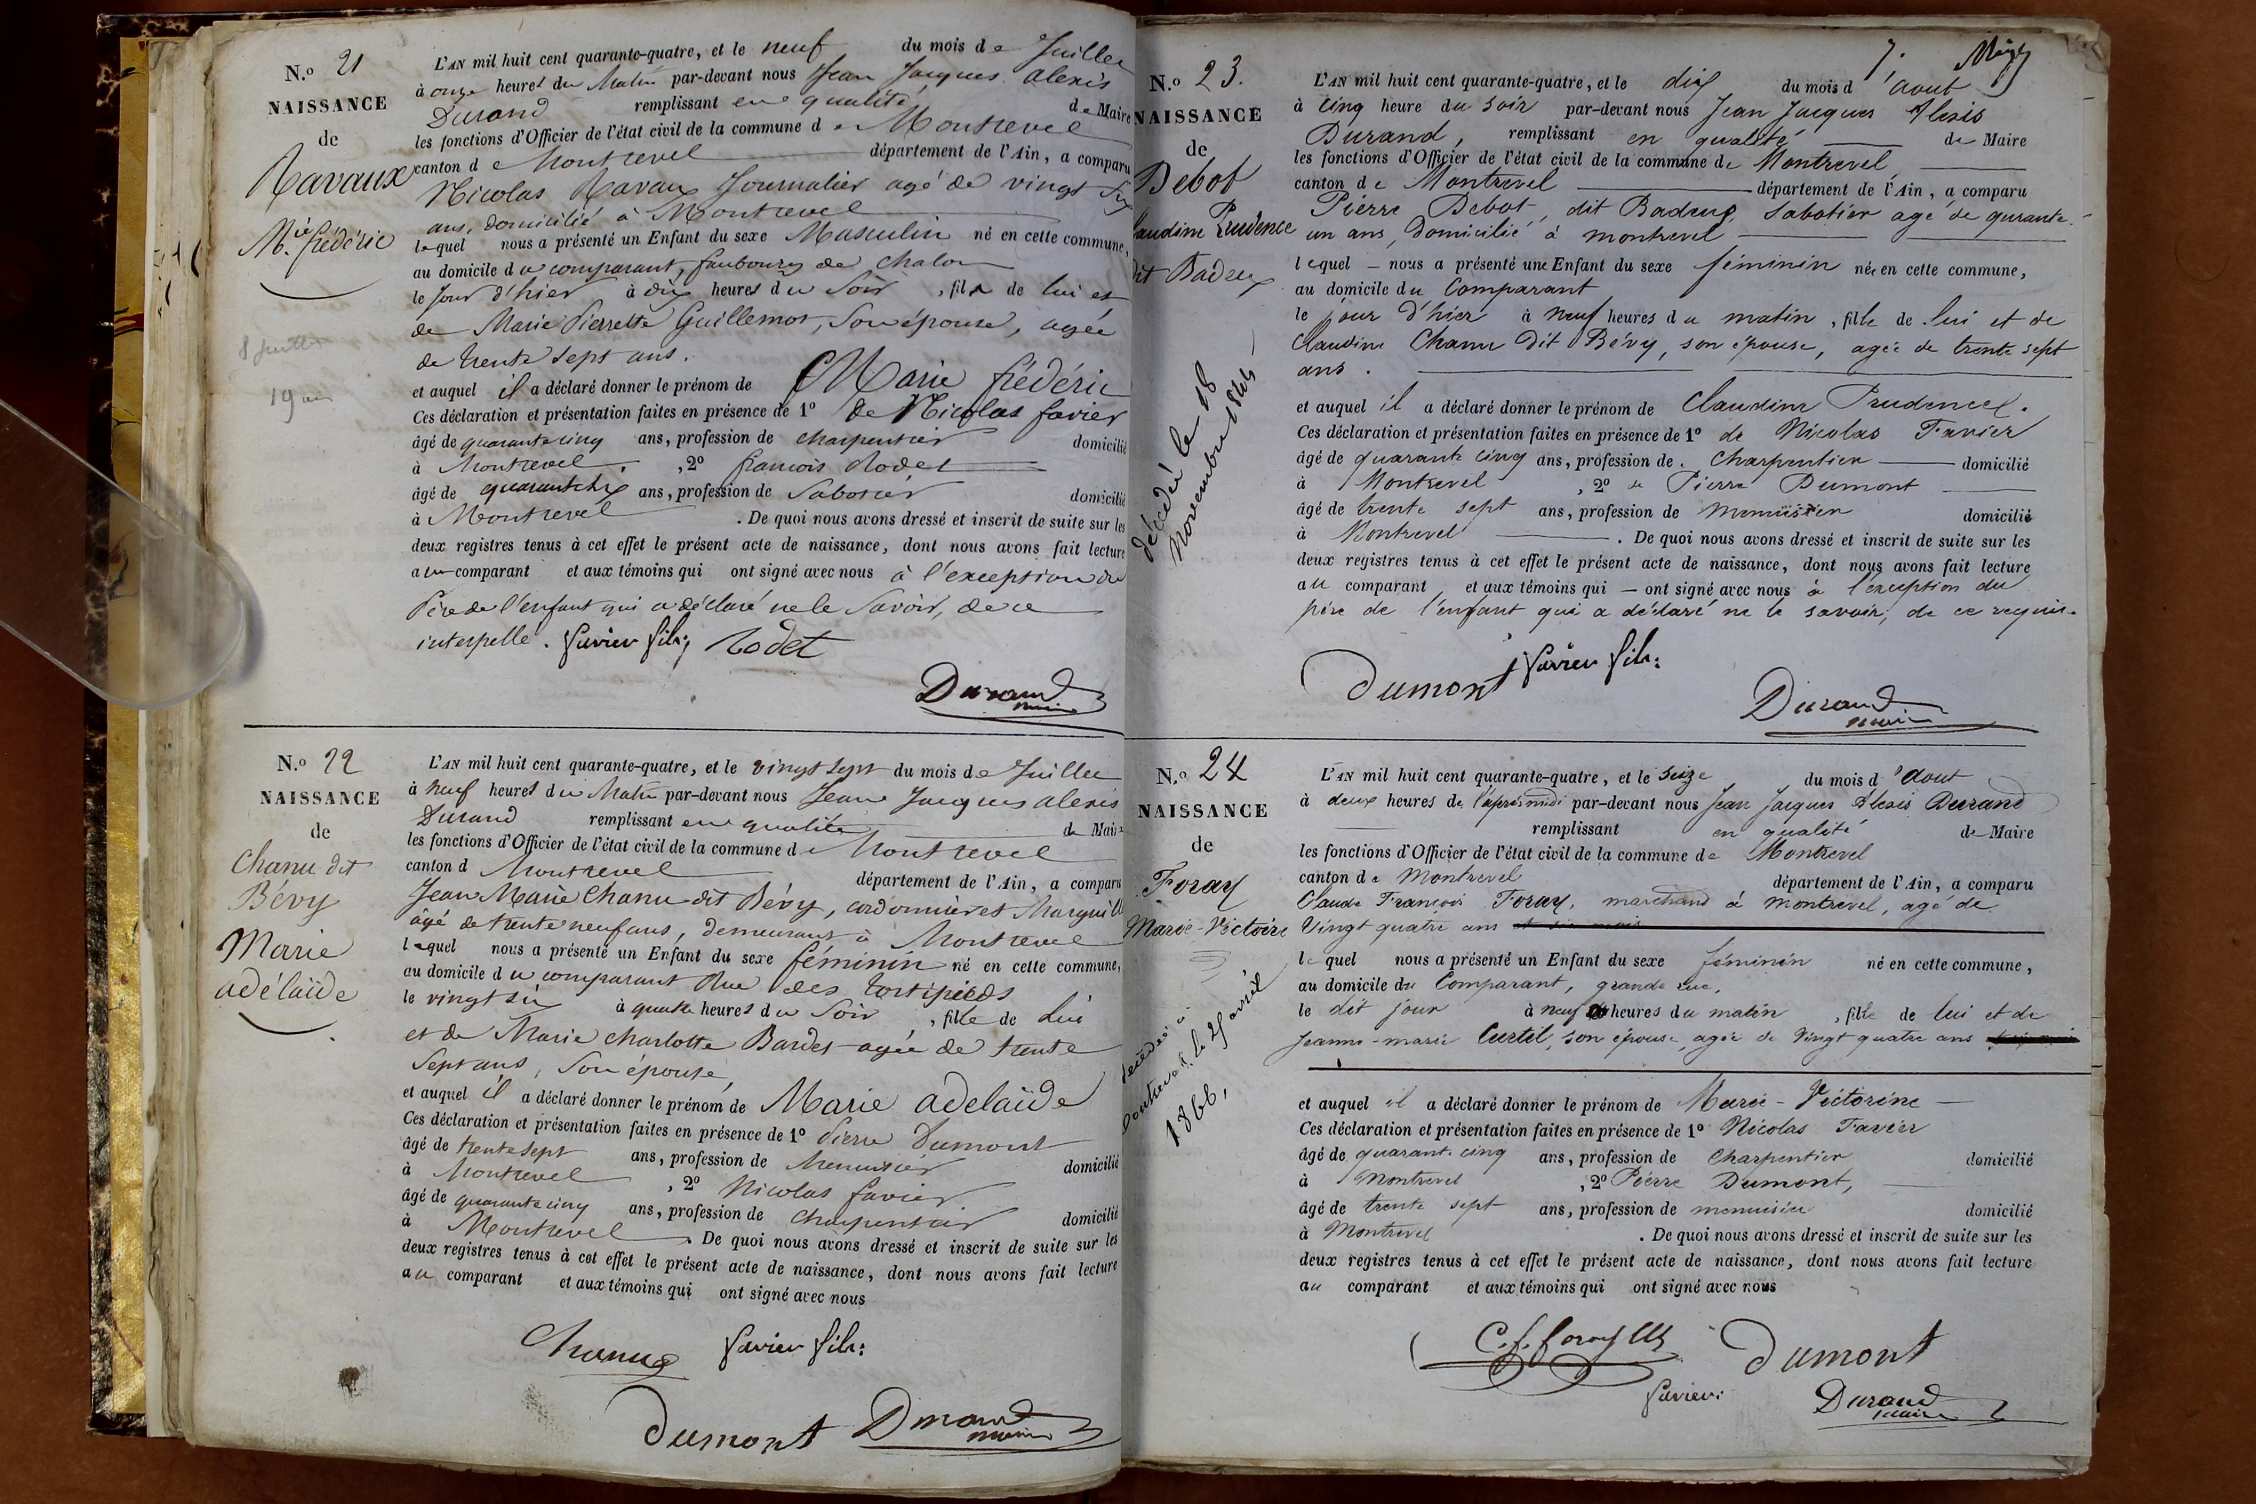 N.o 21
NAISSANCE
de
Ravaux
M.ie frédéric
8 juillet
19 ans
L'AN mil huit cent quarante-quatre, et le neuf du mois de Juillet
à onze heures du Matin par-devant nous Jean Jacques Alexis
Durand remplissant en qualité de Maire
les fonctions d'Officier de l'état civil de la commune de Montrevel
canton de Montrevel département de l'Ain, a comparu
Nicolas Ravaux Journalier agé de vingt six
ans, domicilié à Montrevel
lequel nous a présenté un Enfant du sexe Masculin né en cette commune,
au domicile du comparant, faubourg de Chalon
le jour d'hier à dix heures du Soir, fils de lui et
de Marie Pierrette Guillemot, Son épouse, agée
de trente Sept ans.
et auquel il a déclaré donner le prénom de Marie frédéric
Ces déclaration et présentation faites en présence de 1o de Nicolas favier
âgé de quarante cinq ans, profession de charpentier domicilié
à Montrevel, 2o francois Rodet
âgé de quarante six ans, profession de Sabotier domicilié
à Montrevel. De quoi nous avons dressé et inscrit de suite sur les
deux registres tenus à cet effet le présent acte de naissance, dont nous avons fait lecture
au comparant et aux témoins qui ont signé avec nous à l'exception du
Père de l'enfant qui a déclaré ne le Savoir, de ce
interpellé. favier fils; Rodet
Durand
maire
N.o 22
NAISSANCE
de
Chanu dit
Bévy
Marie
adélaïde
L'AN mil huit cent quarante-quatre, et le vingt sept du mois de Juillet
à neuf heures du Matin par-devant nous Jean Jacques alexis
Durand remplissant en qualité de Maire
les fonctions d'Officier de l'état civil de la commune de Montrevel
canton d Montrevel département de l'Ain, a comparu
Jean Marie Chanu dit Bévy, cordonnier et Marguill
âgé de trente neuf ans, demeurant à Montrevel
lequel nous a présenté un Enfant du sexe féminin né en cette commune,
au domicile du comparant Rue des tortipieds
le vingt six à quatre heures du Soir, fille de Lui
et de Marie charlotte Bardet agée de trente
Sept ans, Son épouse,
et auquel il a déclaré donner le prénom de Marie adelaïde
Ces déclaration et présentation faites en présence de 1o Pierre Dumont
âgé de trente Sept ans, profession de Menuisier domicilié
à Montrevel, 2o Nicolas favier
âgé de quarante cinq ans, profession de charpentier domicilié
à Montrevel. De quoi nous avons dressé et inscrit de suite sur les
deux registres tenus à cet effet le présent acte de naissance, dont nous avons fait lecture
au comparant et aux témoins qui ont signé avec nous
Chanu favier fils:
Dumont Durand
maire
7.
N.o 23.
NAISSANCE
de
Debot
laudine Prudence
dit Badeux
décédée le 18
Novembre
L'AN mil huit cent quarante-quatre, et le dix du mois d'aout
à cinq heure du soir par-devant nous Jean Jacques Alexis
Durand, remplissant en qualité de Maire
les fonctions d'Officier de l'état civil de la commune de Montrevel
canton de Montrevel département de l'Ain, a comparu
Pierre Debot, dit Badeux, sabotier agé de qurante-
un ans, domicilié à montrevel
lequel nous a présenté une Enfant du sexe féminin née en cette commune,
au domicile du Comparant
le jour d'hier à neuf heures du matin, fille de lui et de
Claudine Chanu dit Bévy, son épouse, agée de trente sept
ans.
et auquel il a déclaré donner le prénom de Claudine Prudence.
Ces déclaration et présentation faites en présence de 1o de Nicolas Favier
âgé de quarante cinq ans, profession de Charpentier domicilié
à Montrevel, 2o de Pierre Dumont
âgé de trente sept ans, profession de menuisier domicilié
à Montrevel. De quoi nous avons dressé et inscrit de suite sur les
deux registres tenus à cet effet le présent acte de naissance, dont nous avons fait lecture
au comparant, et aux témoins qui ont signé avec nous à l'exception du
père de l'enfant qui a déclaré ne le savoir, de ce requis.
Dumont favier fils:
Durand
maire
N.o 24
NAISSANCE
de
Foray
Marie-Victoire
décédée à
Montrevel le 25 avril
1866,
L'AN mil huit cent quarante-quatre, et le seize du mois d'aout
à deux heures de l'après midi par-devant nous Jean Jacques Alexis Durand
remplissant en qualité de Maire
les fonctions d'Officier de l'état civil de la commune de Montrevel
canton de Montrevel département de l'Ain, a comparu
Claude François Foray, marchand à montrevel, agé de
Vingt quatre ans
lequel nous a présenté un Enfant du sexe féminin né en cette commune,
au domicile du Comparant, grande rue,
le dit jour à neuf heures du matin, fille de lui et de
Jeanne-marie Curtil, son épouse, agée de Vingt quatre ans
et auquel il a déclaré donner le prénom de Marie-Victorine
Ces déclaration et présentation faites en présence de 1o Nicolas Favier
âgé de quarante cinq ans, profession de Charpentier domicilié
à Montrevel, 2o Pierre Dumont,
âgé de trente sept ans, profession de menuisier domicilié
à Montrevel. De quoi nous avons dressé et inscrit de suite sur les
deux registres tenus à cet effet le présent acte de naissance, dont nous avons fait lecture
au comparant et aux témoins qui ont signé avec nous
C. f. foray Dumont
favier: Durand
maire